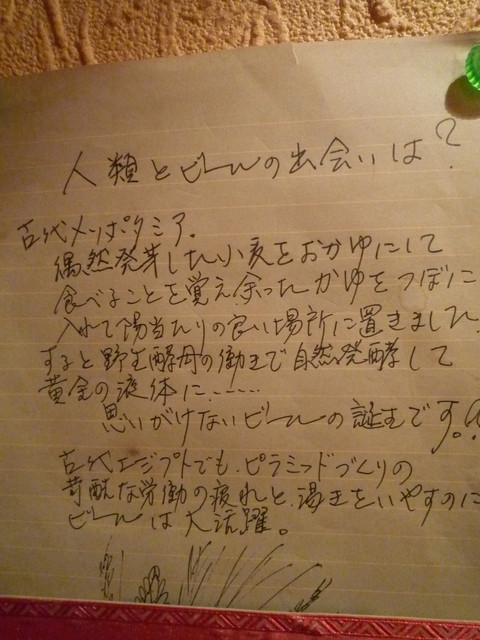 人類とビールの出会いは?
古代メソポタミア.
偶然発芽した小麦をおかゆにして
食べることを覚え余ったかゆをつぼに
入れて陽当たりの良い場所に置きました.
すると野生酵母の働きで自然発酵して
黄金の液体に……
思いがけないビールの誕生です。
古代エジプトでも、ピラミッドづくりの
苛酷な労働の疲れと、渇きをいやすのに
ビールは大活躍。